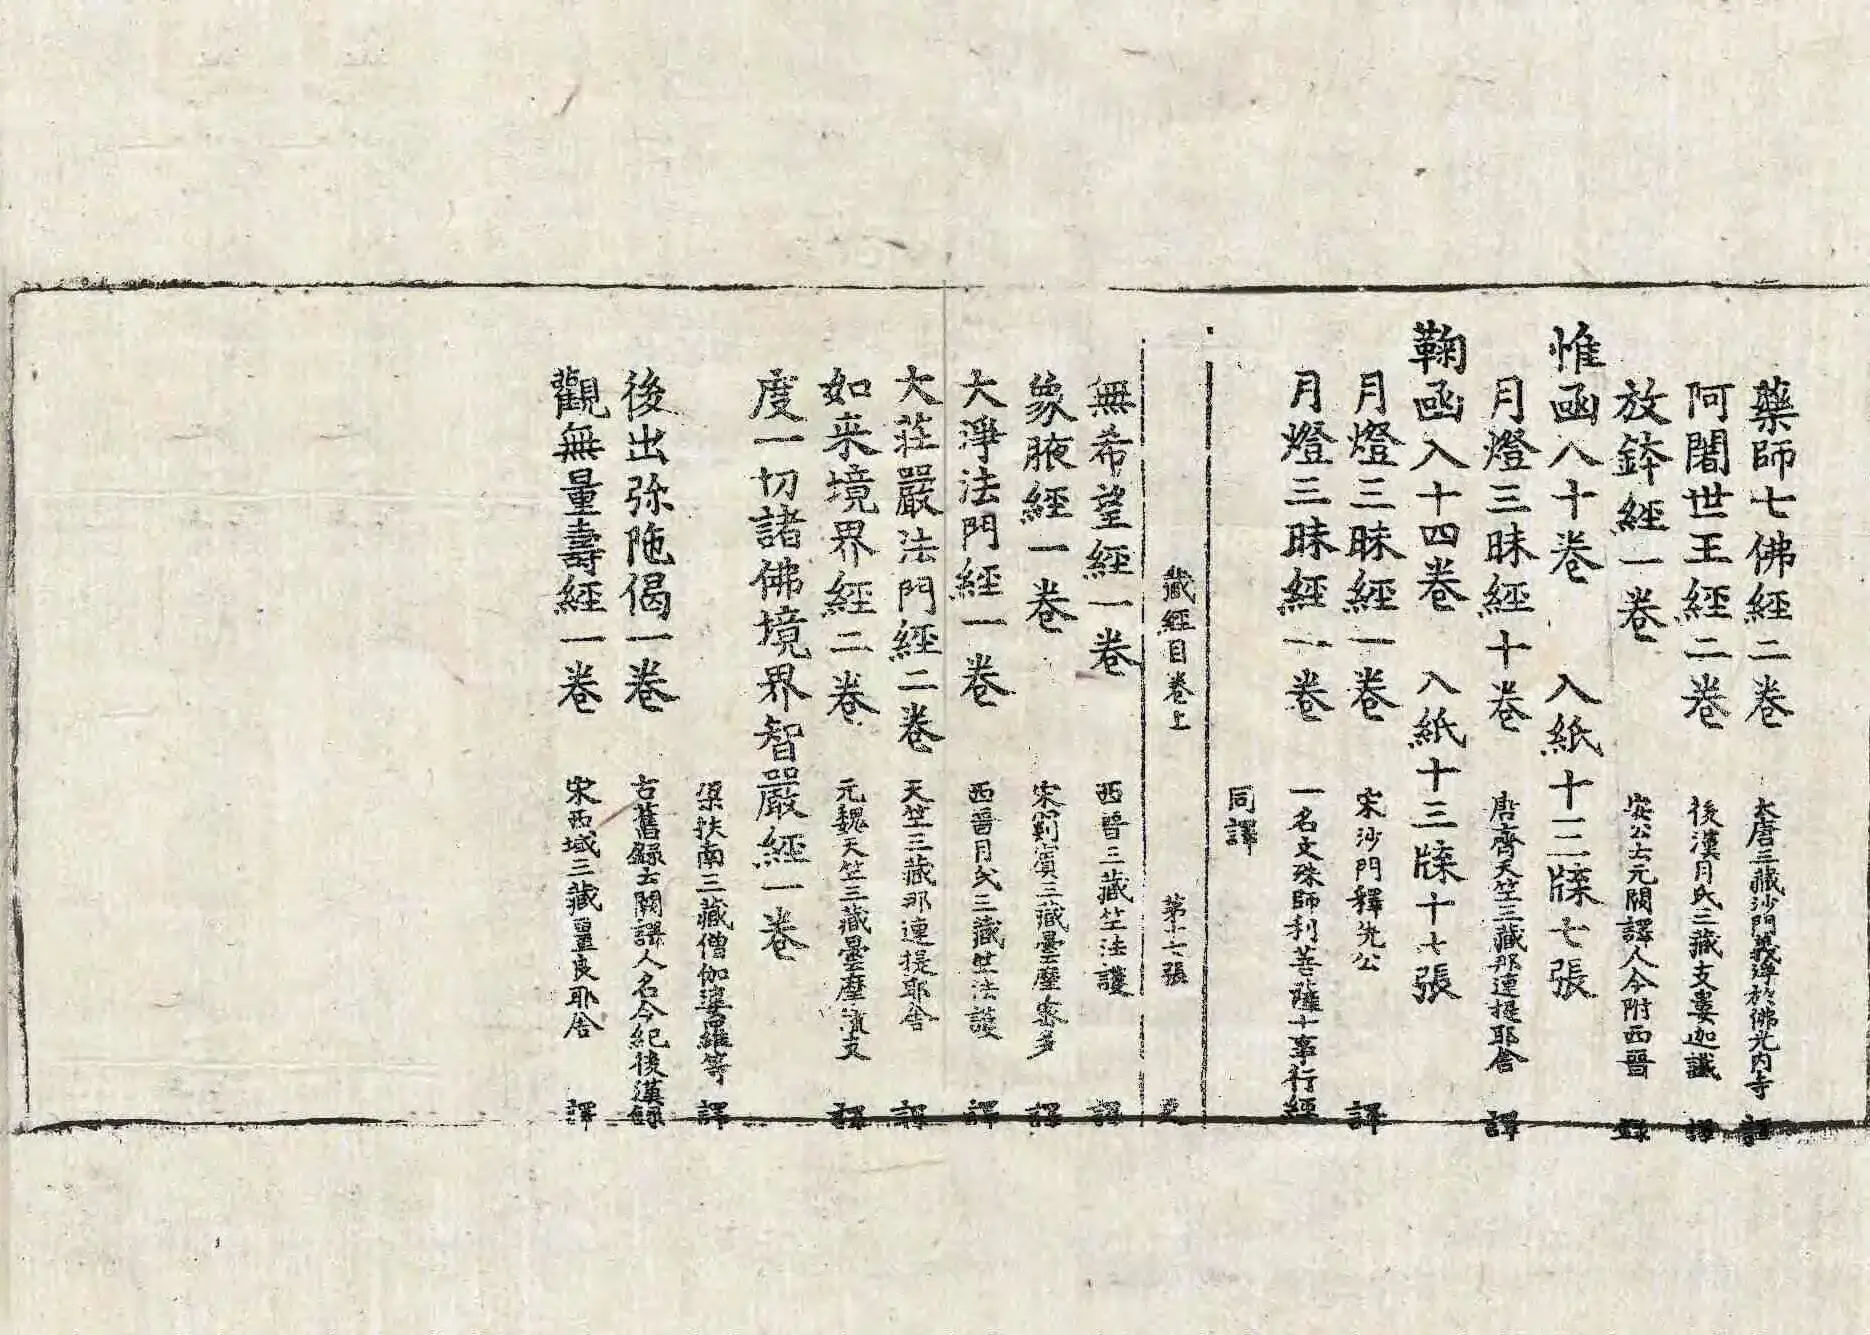 藥師七佛經二卷 大唐三藏沙門義淨於佛光內寺 譯
阿闍世王經二卷 後漢月氏三藏支婁迦讖 譯
放鉢經一卷 安公士元闕譯人今附西晉 錄
惟函入十卷 入紙十二牒七張
月燈三昧經十卷 唐齊天竺三藏那連提耶舍 譯
鞠函入十四卷 入紙十三牒十七張
月燈三昧經一卷 宋沙門釋先公 譯
月燈三昧經一卷 一名文殊師利菩薩十事行經
同譯
藏經目卷上 第十七張
無希望經一卷 西晉三藏竺法護 譯
象腋經一卷 宋罽賓三藏曇摩密多 譯
大淨法門經一卷 西晉月氏三藏竺法護 譯
大莊嚴法門經二卷 天竺三藏那連提耶舍 譯
如来境界經二卷 元魏天竺三藏曇摩流支 譯
度一切諸佛境界智嚴經一卷
梁扶南三藏僧伽婆羅等 譯
後出弥陁偈一卷 古舊錄云闕譯人名今紀後漢錄
觀無量壽經一卷 宋西域三藏畺良耶舍 譯